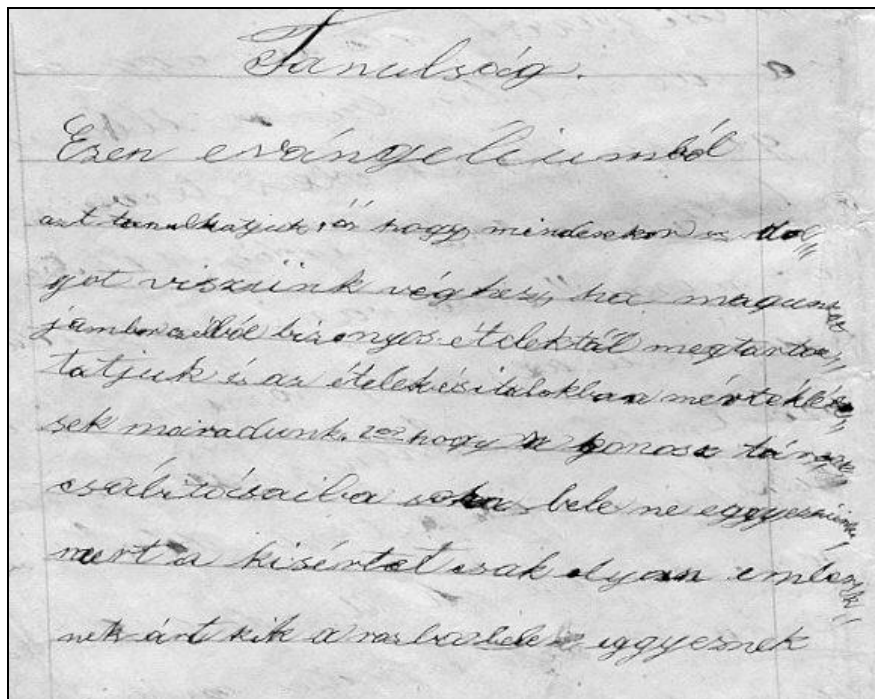 Tanulság.
Ezen evángéliumból
azt tanulhatjuk hogy mindenkor dol„
got viszünk véghez, ha magunkat
jámborságból bizonyos ételektől megtartoz„
tatjuk és az ételek és italokban mértékle„
sek maradunk. hogy a gonosz
csábitásaiba soha bele ne eggyezzünk
mert a kisértet csak olyan embere„
nek árt kik a rosszba bele eggyeznek